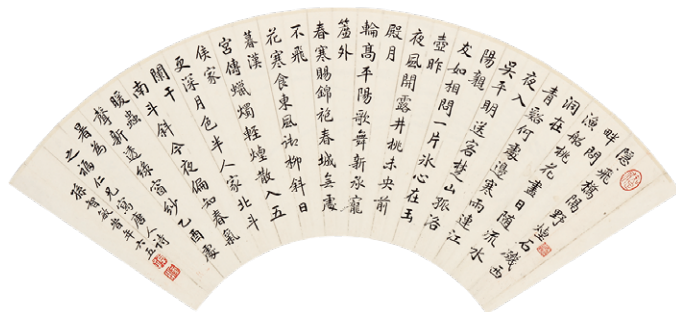 隱飛橋隔野煙石磯西
畔問
漁船桃花盡日随流水
洞在
青谿何處邊寒雨連江
夜入
吳平明送客楚山孤洛
陽親
友如相問一片冰心在玉
壺昨
夜風開露井桃未央前
殿月
輪高平陽歌舞新承寵
簾外
春寒賜錦袍春城無處
不飛
花寒食東風御柳斜日
暮漢
宮傳蠟燭輕煙散入五
侯家
更深月色半人家北斗
闌干
南斗斜今夜偏知春氣
暖蟲
聲新透綠窗紗乙酉處
暑為
之仁兄寫唐人詩
孫智敏年六五